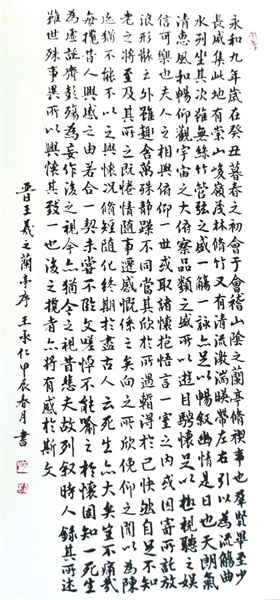 永和九年歲在癸丑暮春之初會于會稽山陰之蘭亭脩稧事也羣賢畢至少
長咸集此地有崇山峻嶺茂林脩竹又有清流激湍暎帶左右引以為流觴曲
水列坐其次雖無絲竹管弦之盛一觴一詠亦足以暢叙幽情是日也天朗氣
清惠風和暢仰觀宇宙之大俯察品類之盛所以遊目騁懷足以極視聽之娛
信可樂也夫人之相與俯仰一世或取諸懷抱悟言一室之內或因寄所託放
浪形骸之外雖趣舍萬殊靜躁不同當其欣於所遇暫得於己快然自足不知
老之將至及其所之既惓情隨事遷感慨係之矣向之所欣俛仰之間以為陳
迹猶不能不以之興懷況脩短隨化終期於盡古人云死生亦大矣豈不痛哉
每攬昔人興感之由若合一契未嘗不臨文嗟悼不能喻之於懷固知一死生
為虛誕齊彭殤為妄作後之視今亦猶今之視昔悲夫故列叙時人錄其所述
雖世殊事異所以興懷其致一也後之攬者亦將有感於斯文
晉王羲之蘭亭序 王永仁甲辰春月書